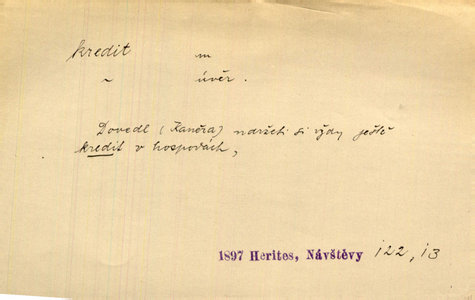 kredit m
~ úvěr.
Dovedl (Kaněra) udržeti si vždy ještě
kredit v hospodách,
1897 Herites, Návštěvy 122, 13